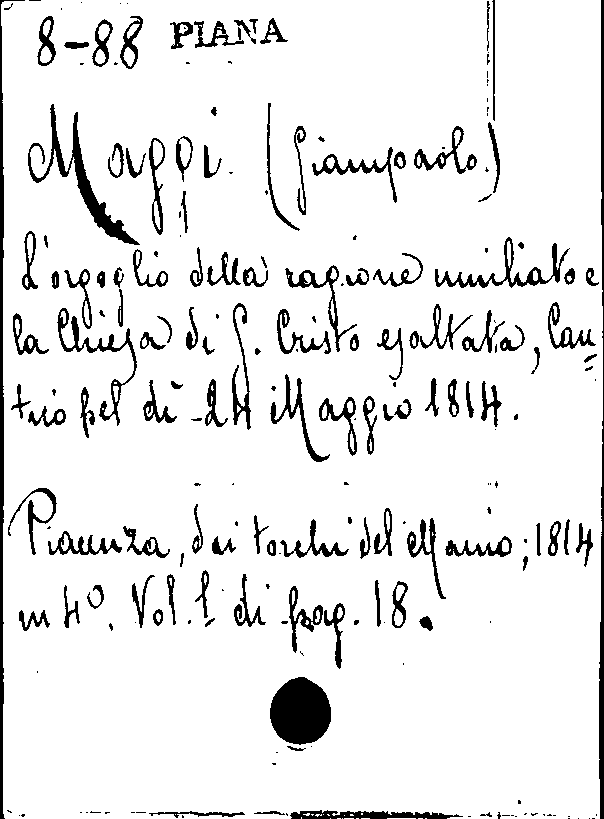 8-88 PIANA
Maggi. (Giampaolo.)
L'orgoglio della ragione umiliato e
la Chiesa di G. Cristo esaltata, Can=
tico pel dì 24 Maggio 1814.
Piacenza, dai torchi del Maino; 1814
in 4º. Vol. 1. di pag. 18.